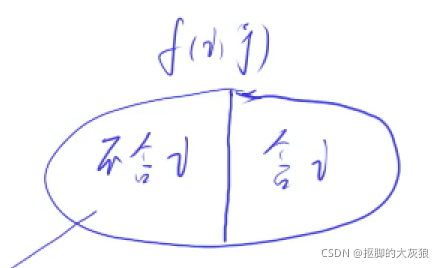 f(i, j)
不含i 含i
CSDN @抠脚的大灰狼